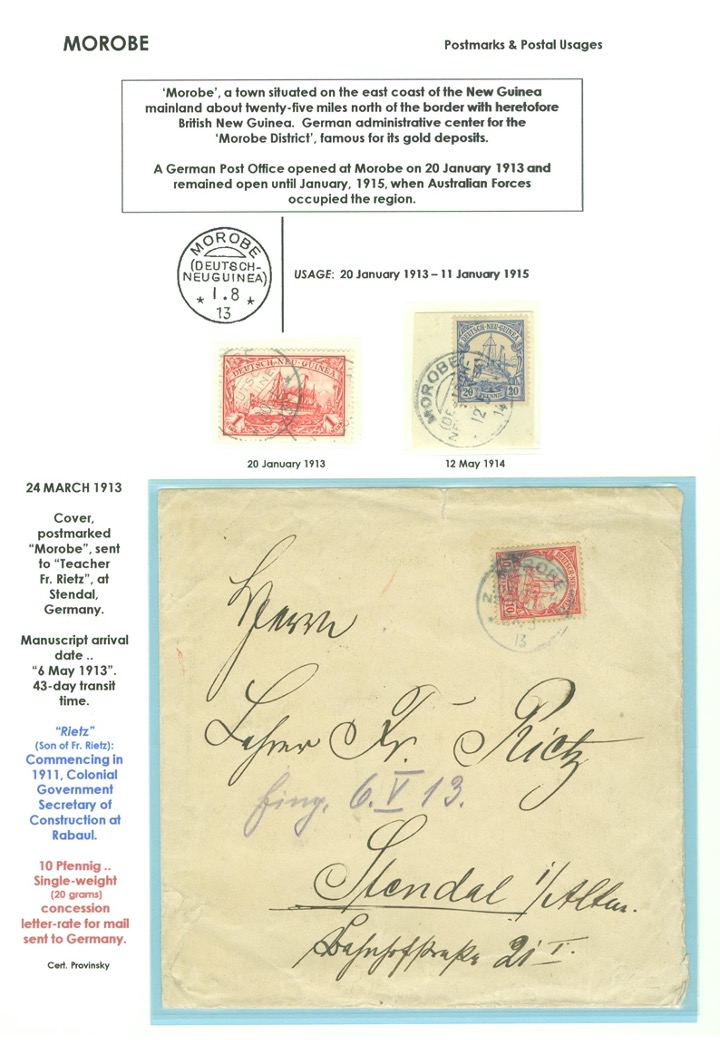 MOROBE
Postmarks & Postal Usages
‘Morobe’, a town situated on the east coast of the New Guinea
mainland about twenty-five miles north of the border with heretofore
British New Guinea. German administrative center for the
‘Morobe District’, famous for its gold deposits.
A German Post Office opened at Morobe on 20 January 1913 and
remained open until January, 1915, when Australian Forces
occupied the region.
MOROBE
(DEUTSCH-
NEUGUINEA)
* 1.8 *
13
USAGE: 20 January 1913 – 11 January 1915
DEUTSCH-NEU-GUINEA
1
DEUTSCH-NEU-GUINEA
20 PFENNIG 20
MOROBE
12
14
20 January 1913
12 May 1914
24 MARCH 1913
Cover,
postmarked
“Morobe”, sent
to “Teacher
Fr. Rietz”, at
Stendal,
Germany.
Manuscript arrival
date ..
“6 May 1913”.
43-day transit
time.
“Rietz”
(Son of Fr. Rietz):
Commencing in
1911, Colonial
Government
Secretary of
Construction at
Rabaul.
10 Pfennig ..
Single-weight
(20 grams)
concession
letter-rate for mail
sent to Germany.
Cert. Provinsky
MOROBE
10
13
Herrn
Lehrer Fr. Rietz
Eing. 6.V 13.
Stendal i/Altm.
Bahnhofstraße 21 I.